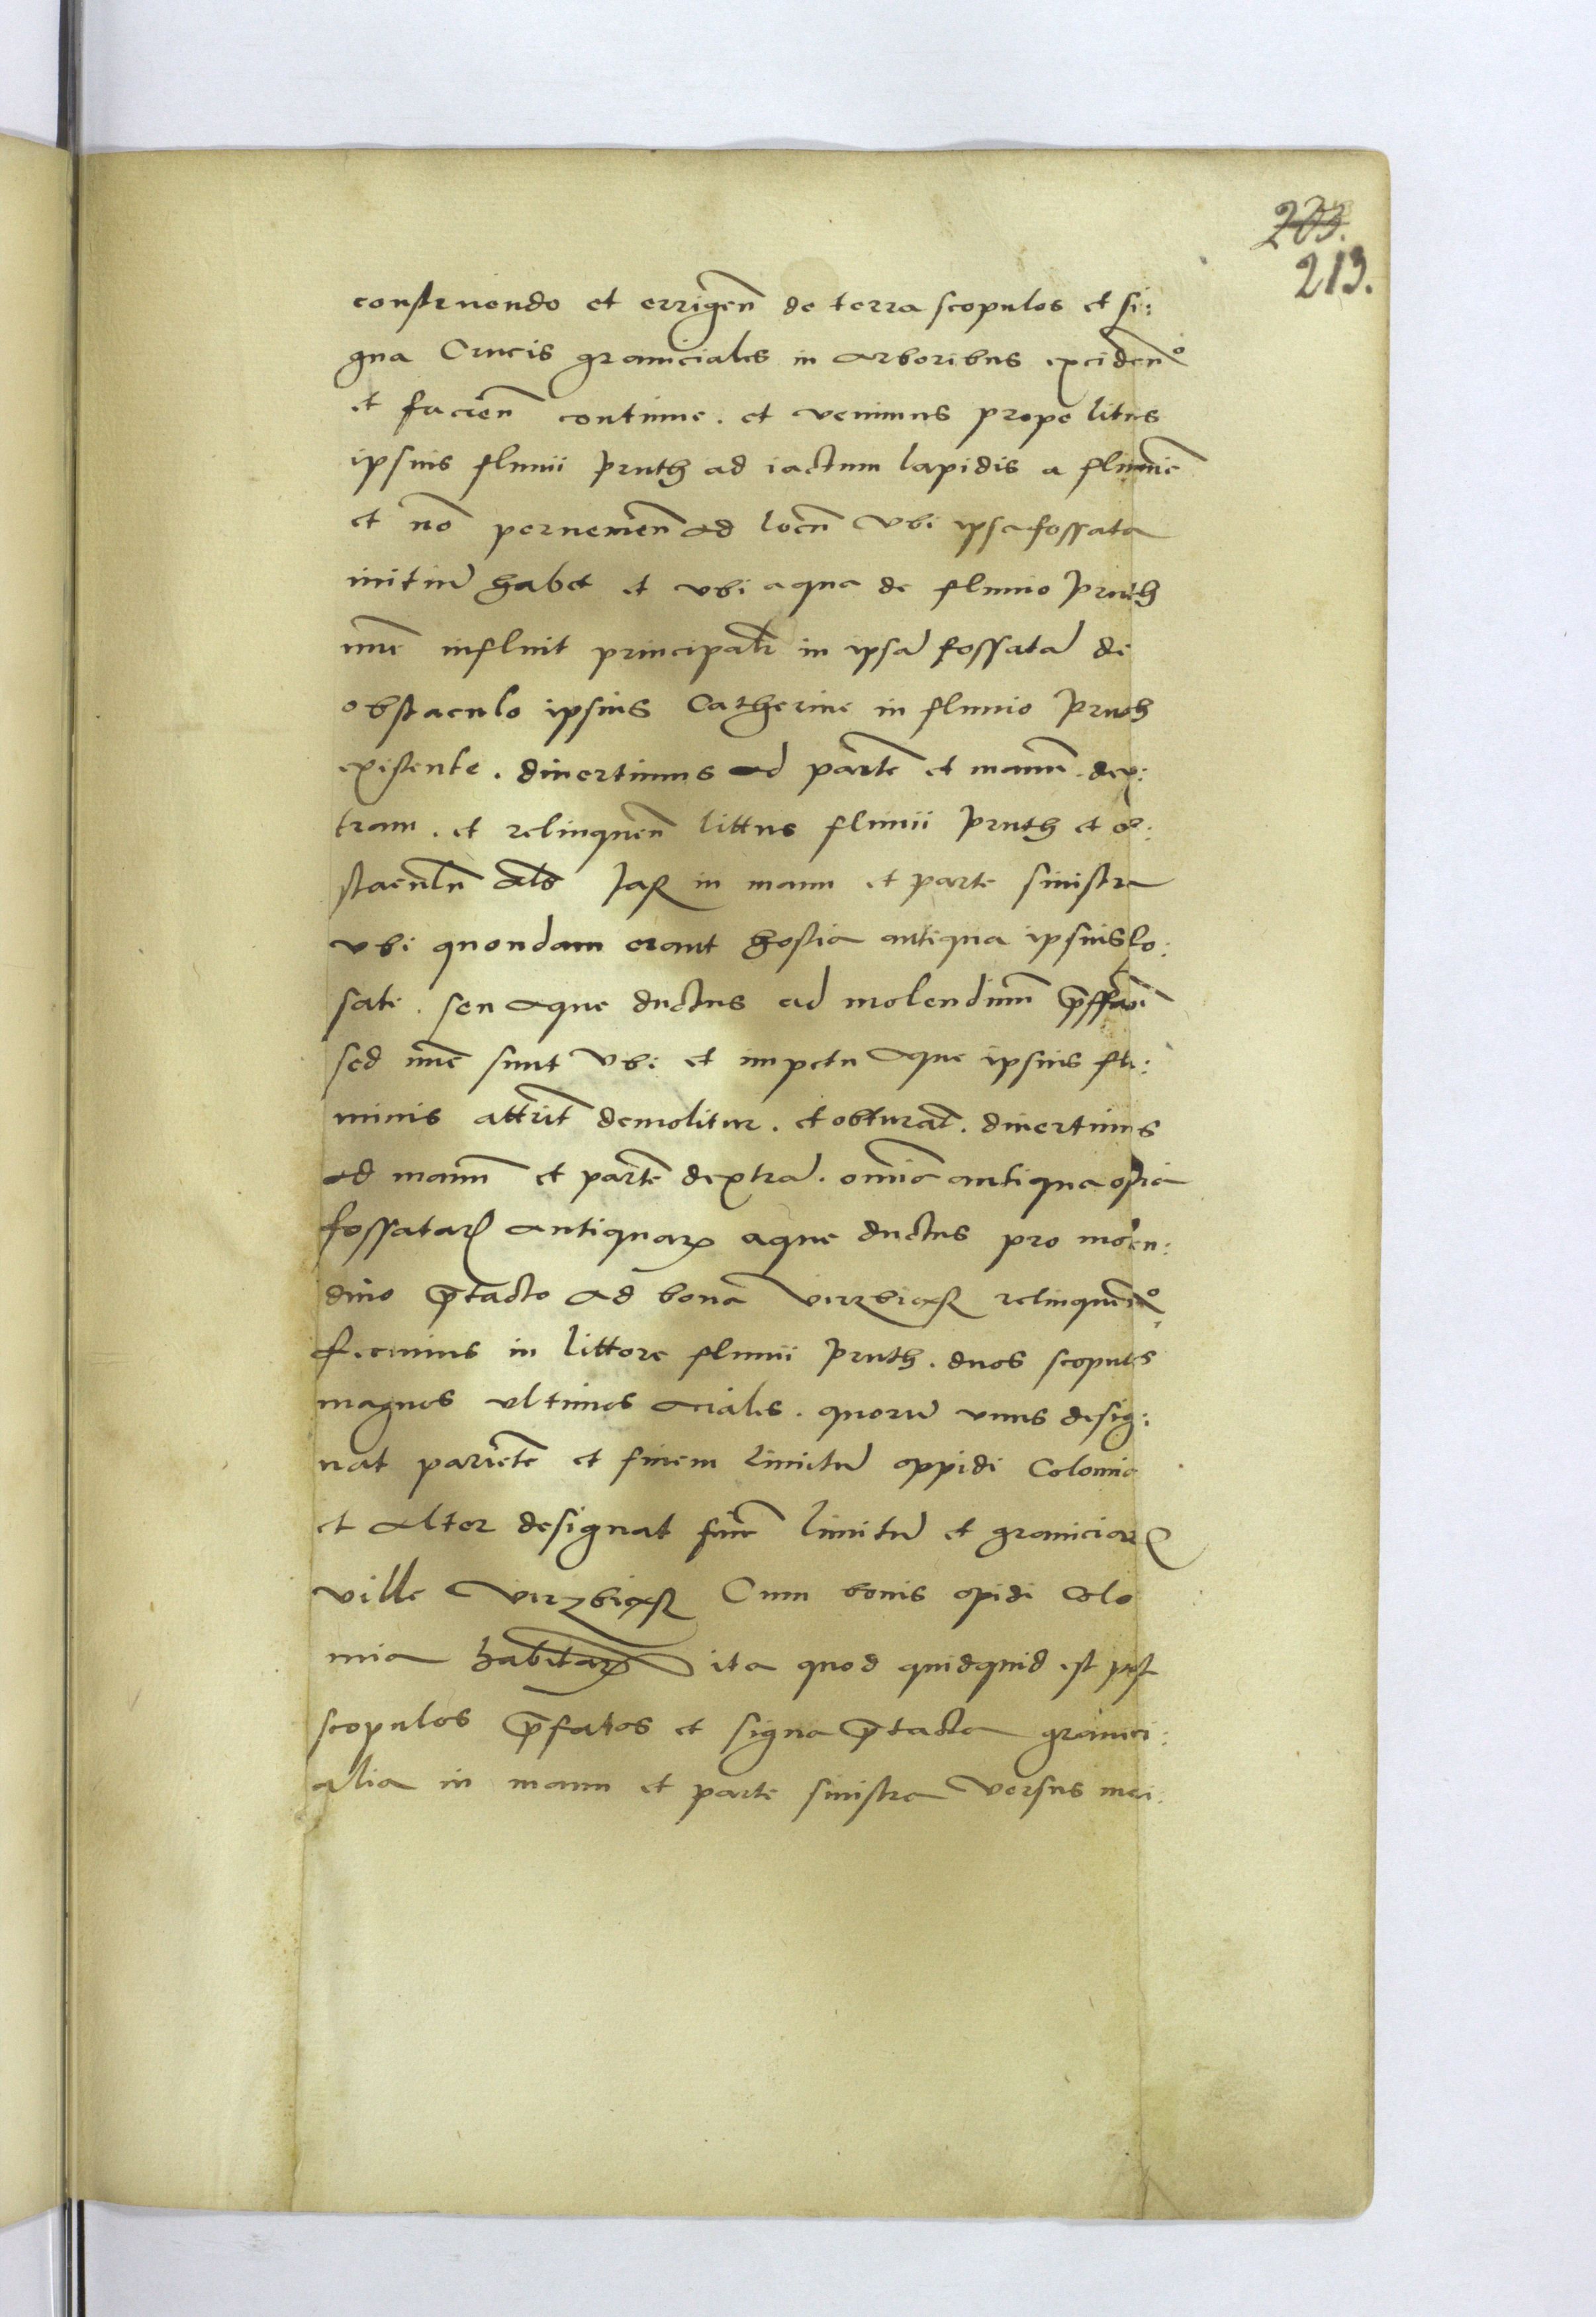 203.
213.
construendo et errigen̄ de terra scopulos et si:
gna Crucis graniciales in arboribus exciden̄o
et facien̄ continue . et venimus prope litus
ipsius fluuii Pruth ad iactum lapidis a flumīe
et nō peruenien̄ ad locū vbi ipsa fossata
initiū habet et vbi aqua de fluuio Pruth
nūc influit principalr̄ in ipsā fossatā de
obstaculo ipsius Catherine in fluuio Pruth
existente . diuertimus ad partē et manū . dex:
tram . et relinquen̄ littus fluuii Pruth et ob:
staculū als Jaz in manu et parte sinistra
vbi quondam erant hostia antiqua ipsius fo:
sate . seu aque ductus ad molendinū
sed nūc sunt vbi et impetu aque ipsius flu:
minis demolitur . et obturat . diuertimus
ad manū et partē dextrā . omīa antiqua ostia
fossatarꝝ antiquarꝝ aque ductus pro molen:
dino p̄tacto ad bona Virzbicz relinquen̄o
fecimus in littore fluuii Pruth . duos scopulos
magnos vltimos aciales . quorū vnus desig:
nat parietē et finem limitū oppidi Colomia
et alter designat finē limitū et graniciarꝝ
ville Virzbicz Cum bonis opidi Colo
mia ita quod quidquid est post
scopulos p̄fatos et signa p̄tacta granici:
alia in manu et parte sinistra versus meri: